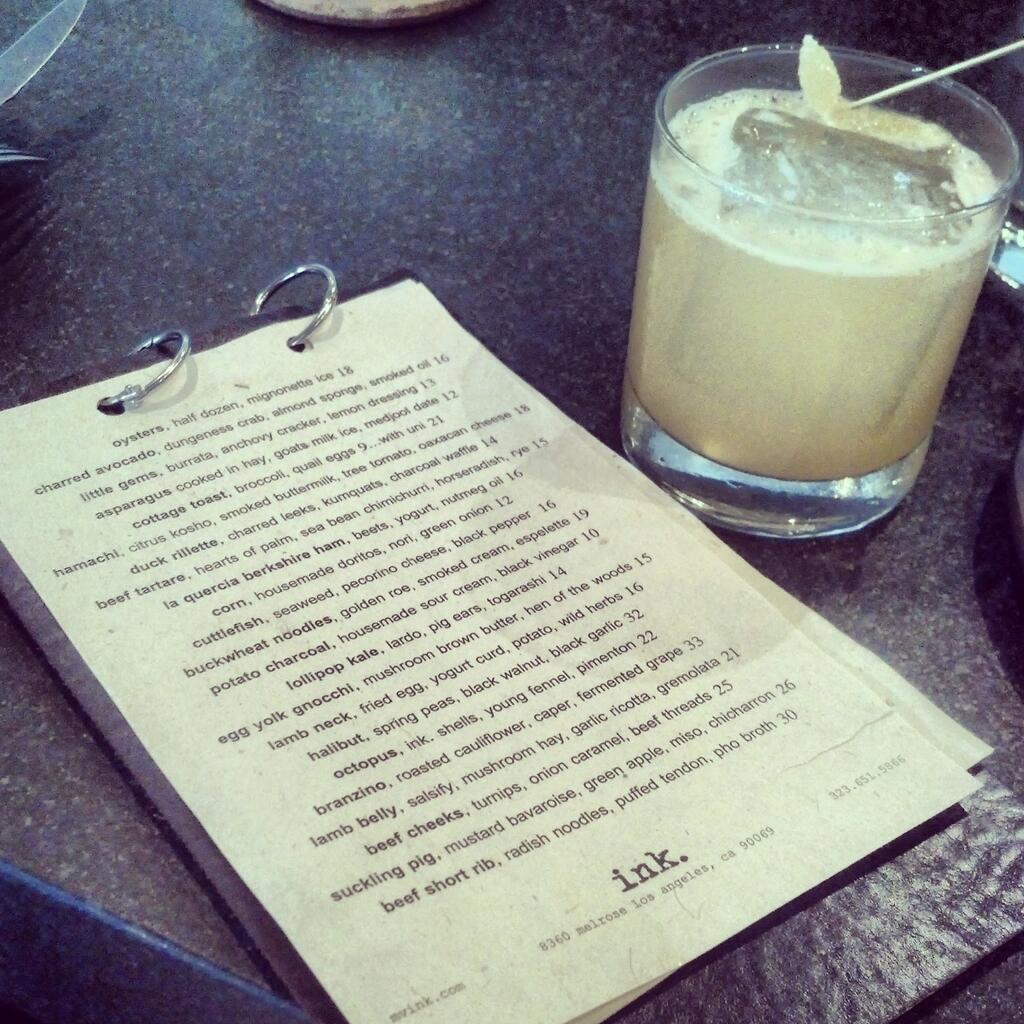 oysters, half dozen, mignonette ice 18
charred avocado, dungeness crab, almond sponge, smoked oil 16
little gems, burrata, anchovy cracker, lemon dressing 13
asparagus cooked in hay, goats milk ice, medjool date 12
cottage toast, broccoli, quail eggs 9...with uni 21
hamachi, citrus kosho, smoked buttermilk, tree tomato, oaxacan cheese 18
duck rillette, charred leeks, kumquats, charcoal waffle 14
beef tartare, hearts of palm, sea bean chimichurri, horseradish, rye 15
la quercia berkshire ham, beets, yogurt, nutmeg oil 16
corn, housemade doritos, nori, green onion 12
cuttlefish, seaweed, pecorino cheese, black pepper 16
buckwheat noodles, golden roe, smoked cream, espelette 19
potato charcoal, housemade sour cream, black vinegar 10
lollipop kale, lardo, pig ears, togarashi 14
egg yolk gnocchi, mushroom brown butter, hen of the woods 15
lamb neck, fried egg, yogurt curd, potato, wild herbs 16
halibut, spring peas, black walnut, black garlic 32
octopus, ink. shells, young fennel, pimenton 22
branzino, roasted cauliflower, caper, fermented grape 33
lamb belly, salsify, mushroom hay, garlic ricotta, gremolata 21
beef cheeks, turnips, onion caramel, beef threads 25
suckling pig, mustard bavaroise, green apple, miso, chicharron 26
beef short rib, radish noodles, puffed tendon, pho broth 30
ink.
mvink.com
8360 melrose los angeles, ca 90069
323.651.5866